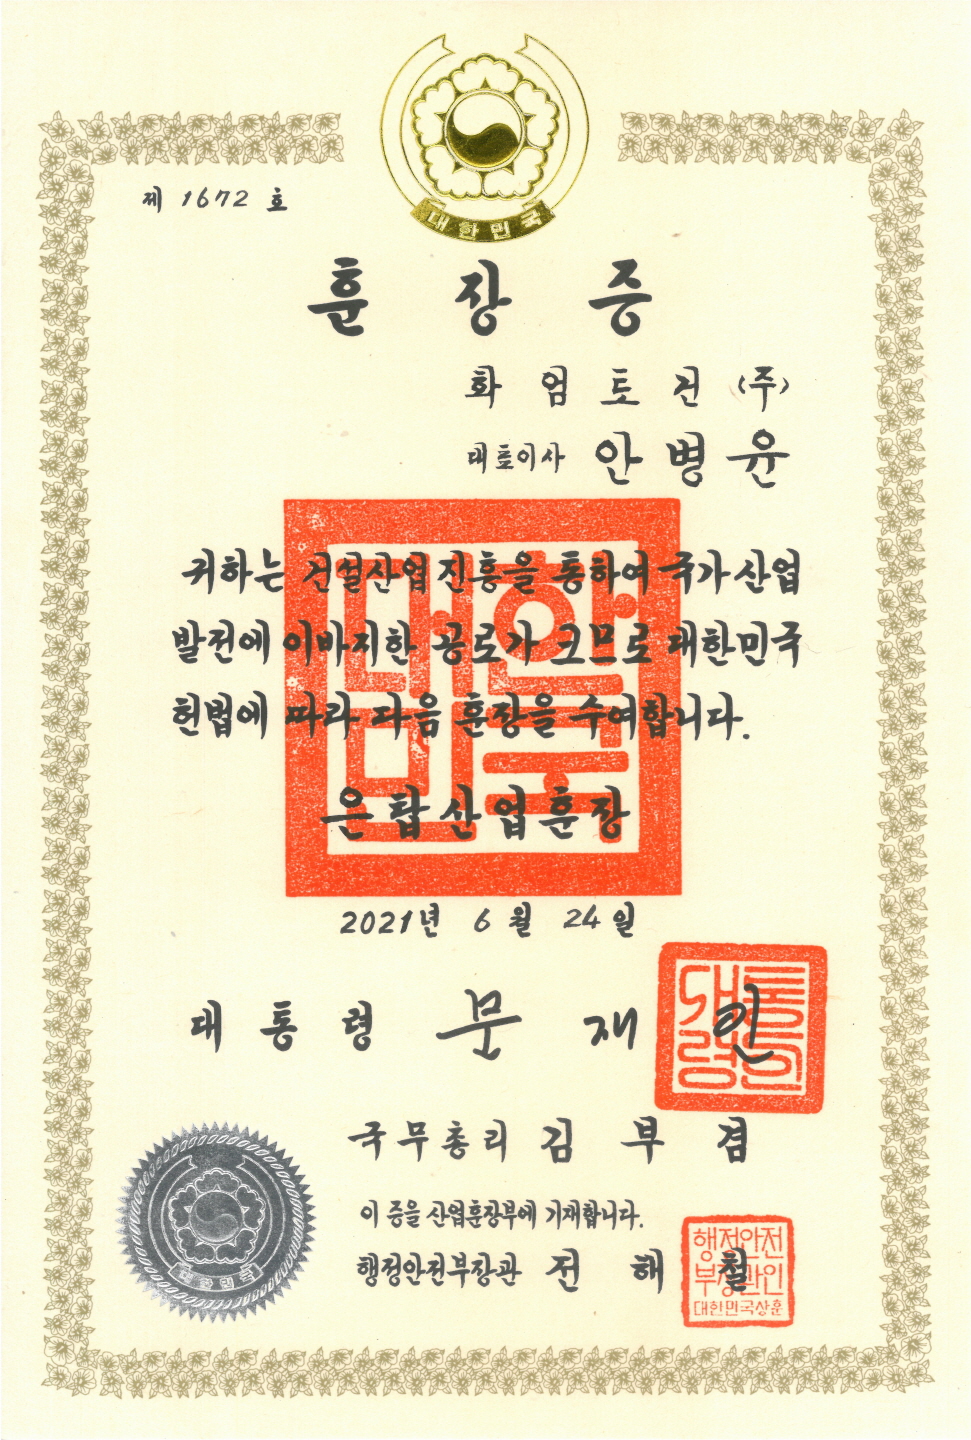 대한민국
제 1672 호
훈장증
화엄토건(주)
대표이사 안병윤
귀하는 건설산업진흥을 통하여 국가산업
발전에 이바지한 공로가 크므로 대한민국
헌법에 따라 다음 훈장을 수여합니다.
은탑산업훈장
대한민국
2021년 6월 24일
대통령 문재인
대통령의인
국무총리 김부겸
이 증을 산업훈장부에 기재합니다.
행정안전부장관 전해철
행정안전
부장관인
대한민국상훈
대한민국